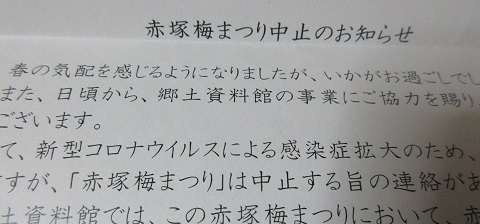 赤塚梅まつり中止のお知らせ
春の気配を感じるようになりましたが、いかがお過ごしでし
また、日頃から、郷土資料館の事業にご協力を賜り、
ございます。
て、新型コロナウイルスによる感染症拡大のため、
すが、「赤塚梅まつり」は中止する旨の連絡があ
土資料館では、この赤塚梅まつりにおいて、赤